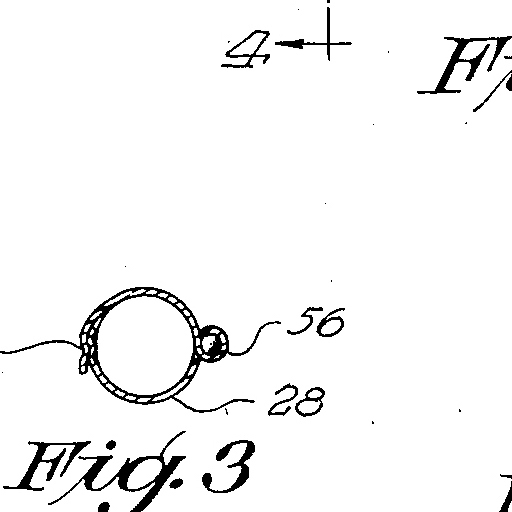 4
56
28
Fig. 3